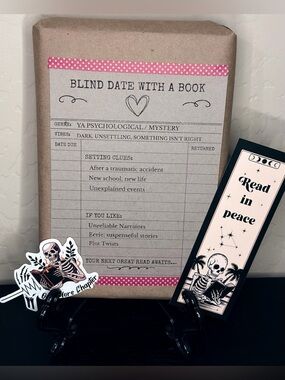 BLIND DATE WITH A BOOK
GENRE: YA PSYCHOLOGICAL / MYSTERY
VIBES: DARK, UNSETTLING, SOMETHING ISN'T RIGHT
DATE DUE RETURNED
SETTING CLUES:
After a traumatic accident
New school, new life
Unexplained events
IF YOU LIKE:
Unreliable Narrators
Eerie, suspenseful stories
Plot Twists
YOUR NEXT GREAT READ AWAITS...
Read
in
peace
More Chapter